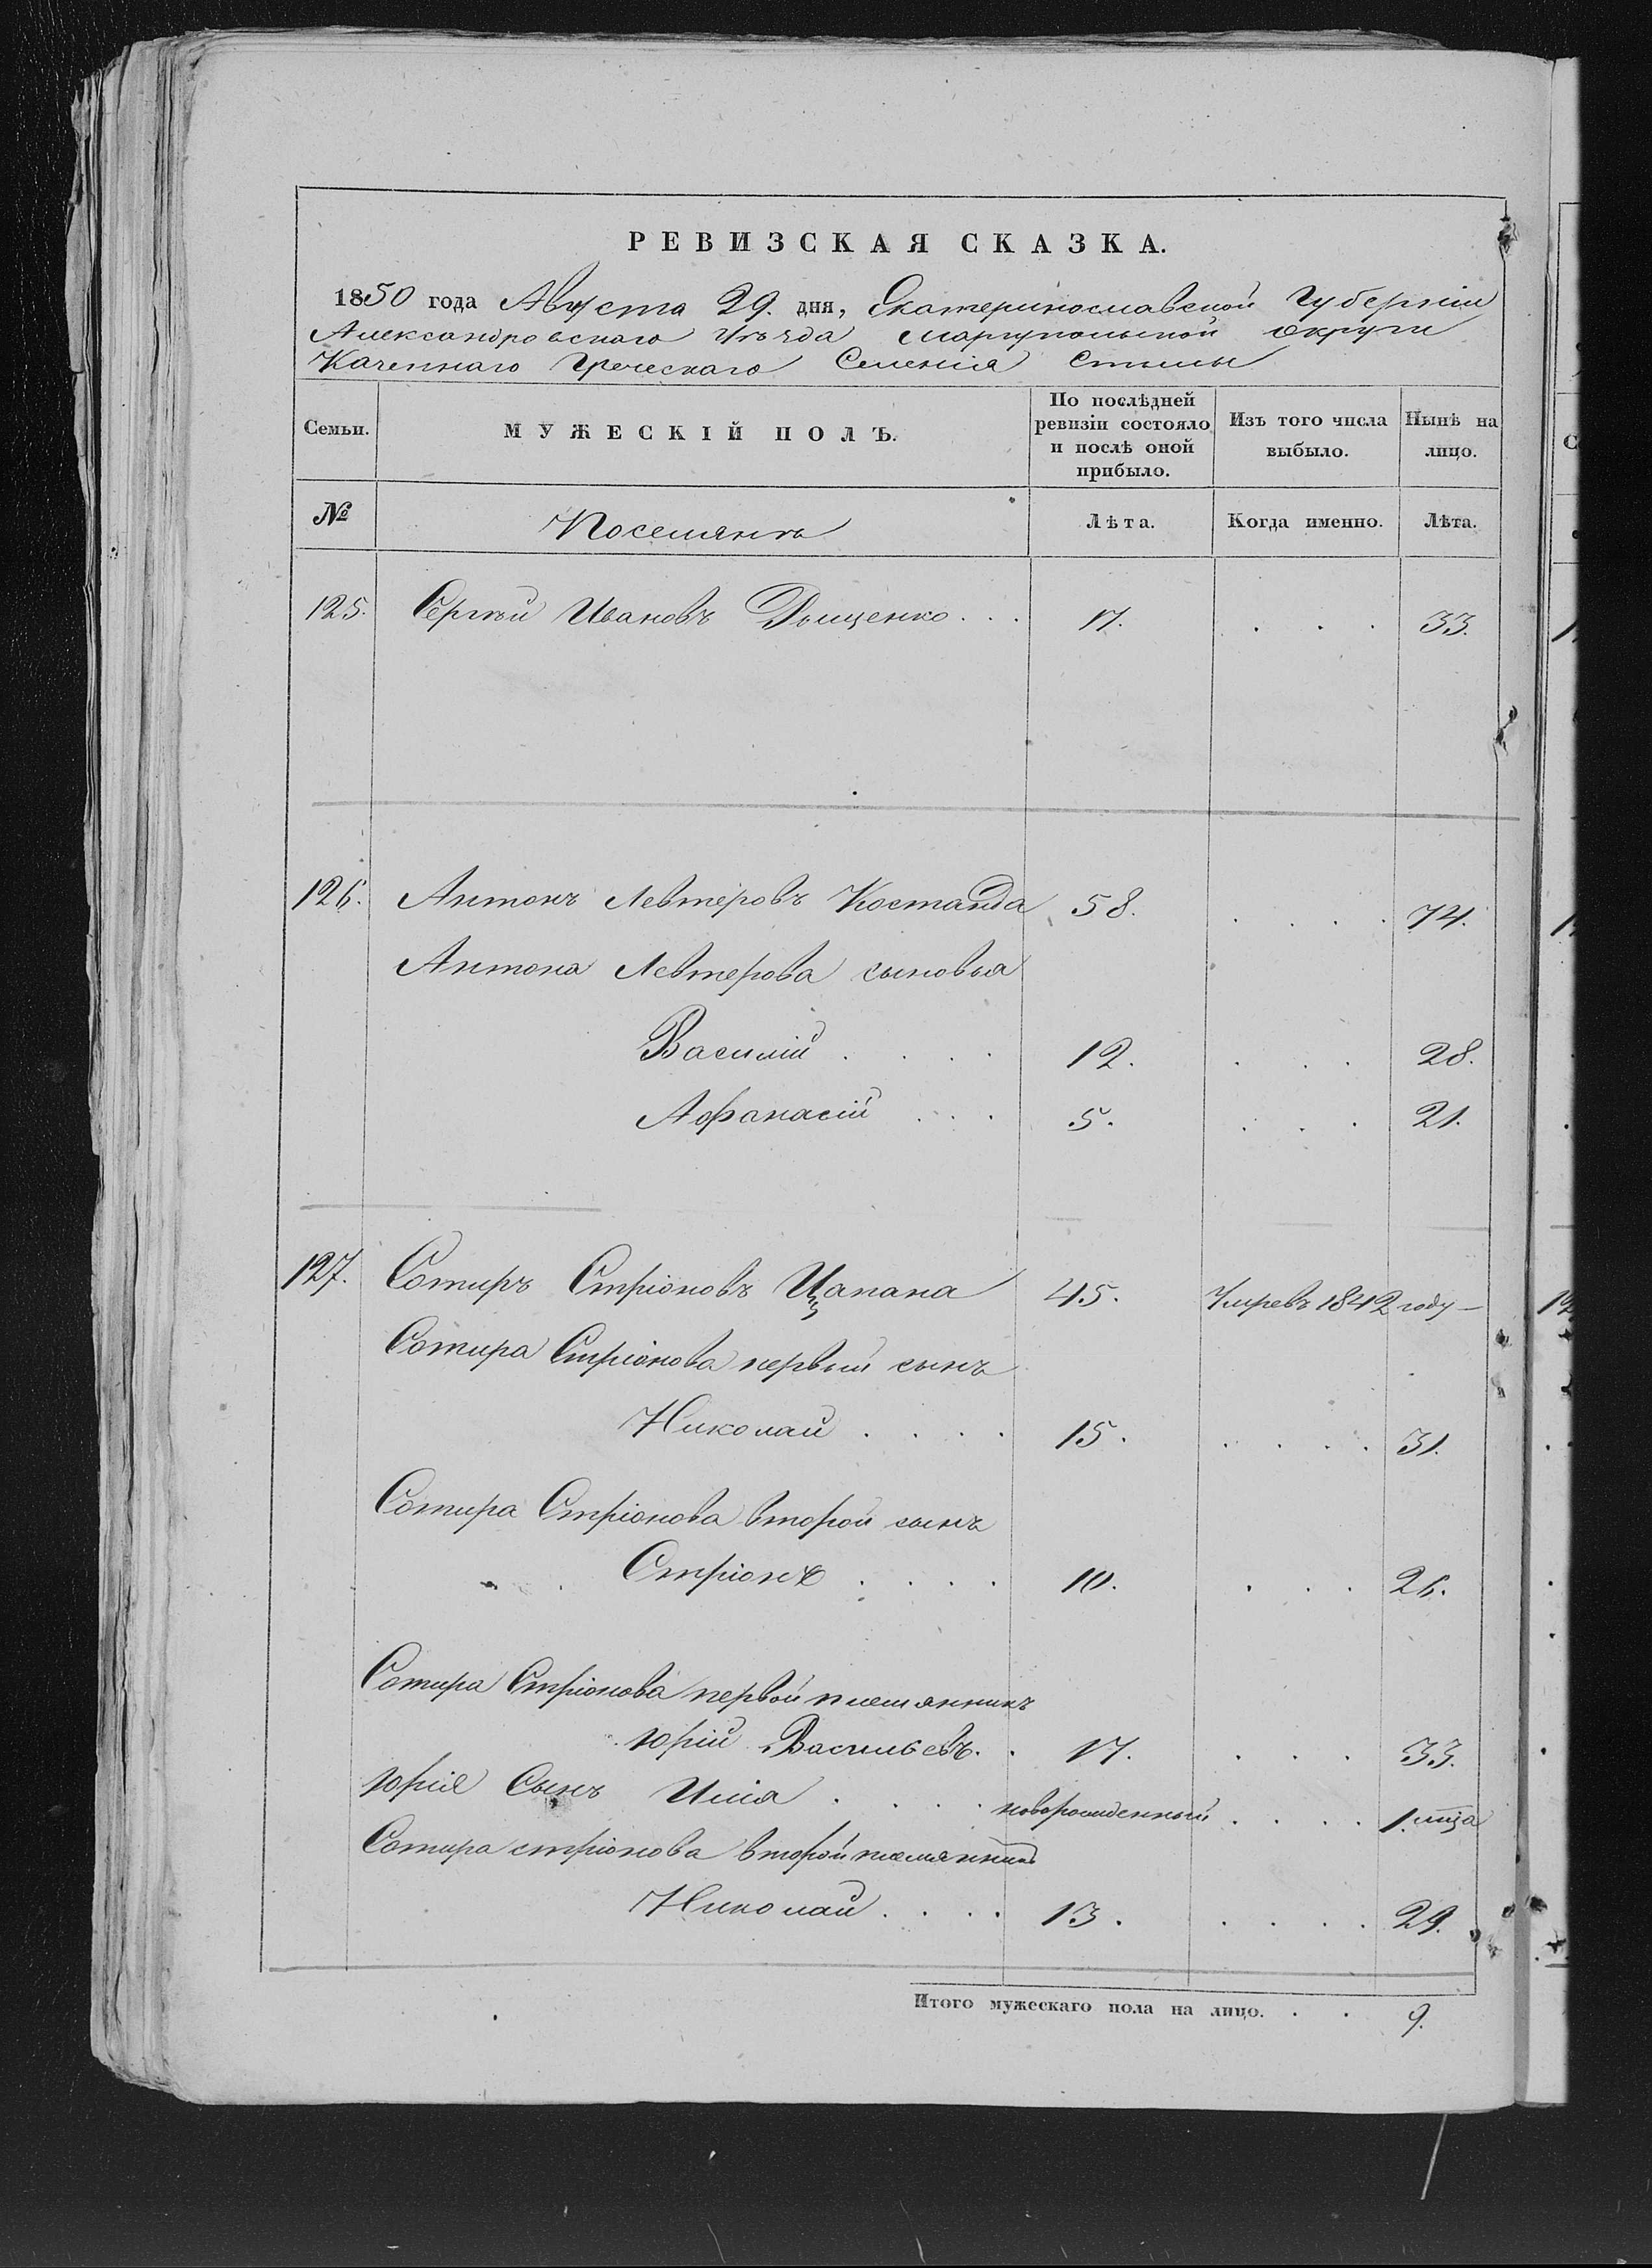 РЕВИЗСКАЯ СКАЗКА.
1850 года Августа 29. дня, Екатеринославской Губерніи
Александровскаго Уѣзда Маріупольской округи
Казеннаго Греческаго Селенія Стилы
Семьи. МУЖЕСКІЙ ПОЛЪ. По послѣдней ревизіи состояло и послѣ оной прибыло. Изъ того числа выбыло. Нынѣ на лицо.
№ Поселянъ Лѣта. Когда именно. Лѣта.
125. Сергѣй Ивановъ Дыщенко . . . 17. . . . 33.
126. Антонъ Левтеровъ Костанда 58. . . . . 74.
Антона Левтерова сыновья
Василій . . . . 12. . . . 28.
Афанасій . . . 5. . . . 21.
127. Сотиръ Стріоновъ Цапана 45. Умревъ 1842 году —
Сотира Стріонова первый сынъ
Николай . . . . 15. . . . . 31.
Сотира Стріонова второй сынъ
Стріонъ . . . . 10. . . . 26.
Сотира Стріонова первой племянникъ
Юрій Васильевъ . . 17. . . . 33.
Юрія Сынъ Илія . . . . новорожденный . . . . 1. мца
Сотира стріонова второй племянникъ
Николай . . . . 13. . . . . 29.
Итого мужескаго пола на лицо. . . 9.